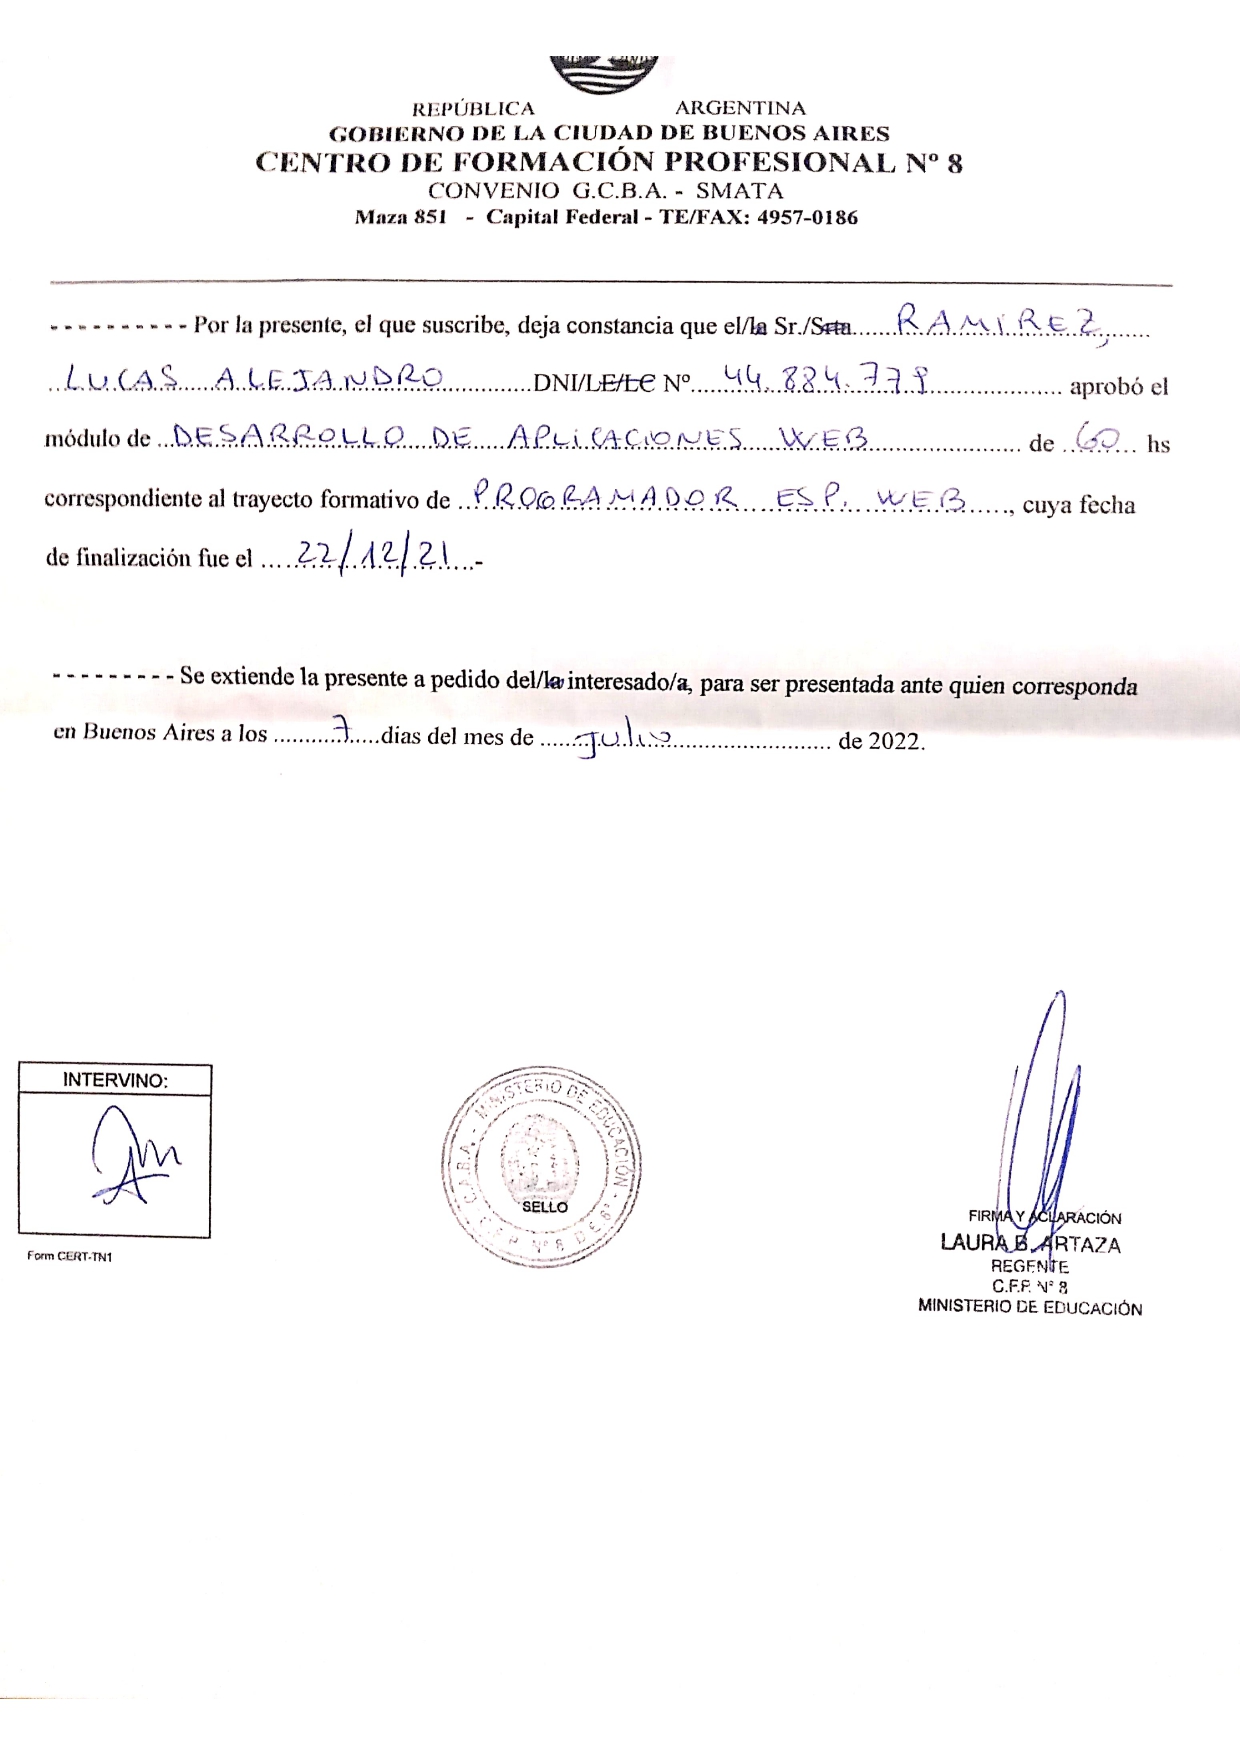 REPÚBLICA ARGENTINA
GOBIERNO DE LA CIUDAD DE BUENOS AIRES
CENTRO DE FORMACIÓN PROFESIONAL Nº 8
CONVENIO G.C.B.A. - SMATA
Maza 851 - Capital Federal - TE/FAX: 4957-0186
---------- Por la presente, el que suscribe, deja constancia que el/la Sr./Srta......RAMIREZ,......
..LUCAS ALEJANDRO..............DNI/LE/LC Nº....44.884.779.................... aprobó el
módulo de ...DESARROLLO DE APLICACIONES WEB........................ de ..60... hs
correspondiente al trayecto formativo de ..PROGRAMADOR ESP. WEB......, cuya fecha
de finalización fue el .....22/12/21....-
--------- Se extiende la presente a pedido del/la interesado/a, para ser presentada ante quien corresponda
en Buenos Aires a los ..........7.....dias del mes de ......julio......................... de 2022.
INTERVINO:
Form CERT-TN1
MINISTERIO DE EDUCACIÓN
SELLO
FIRMA Y ACLARACIÓN
LAURA B. ARTAZA
REGENTE
C.F.P. Nº 8
MINISTERIO DE EDUCACIÓN